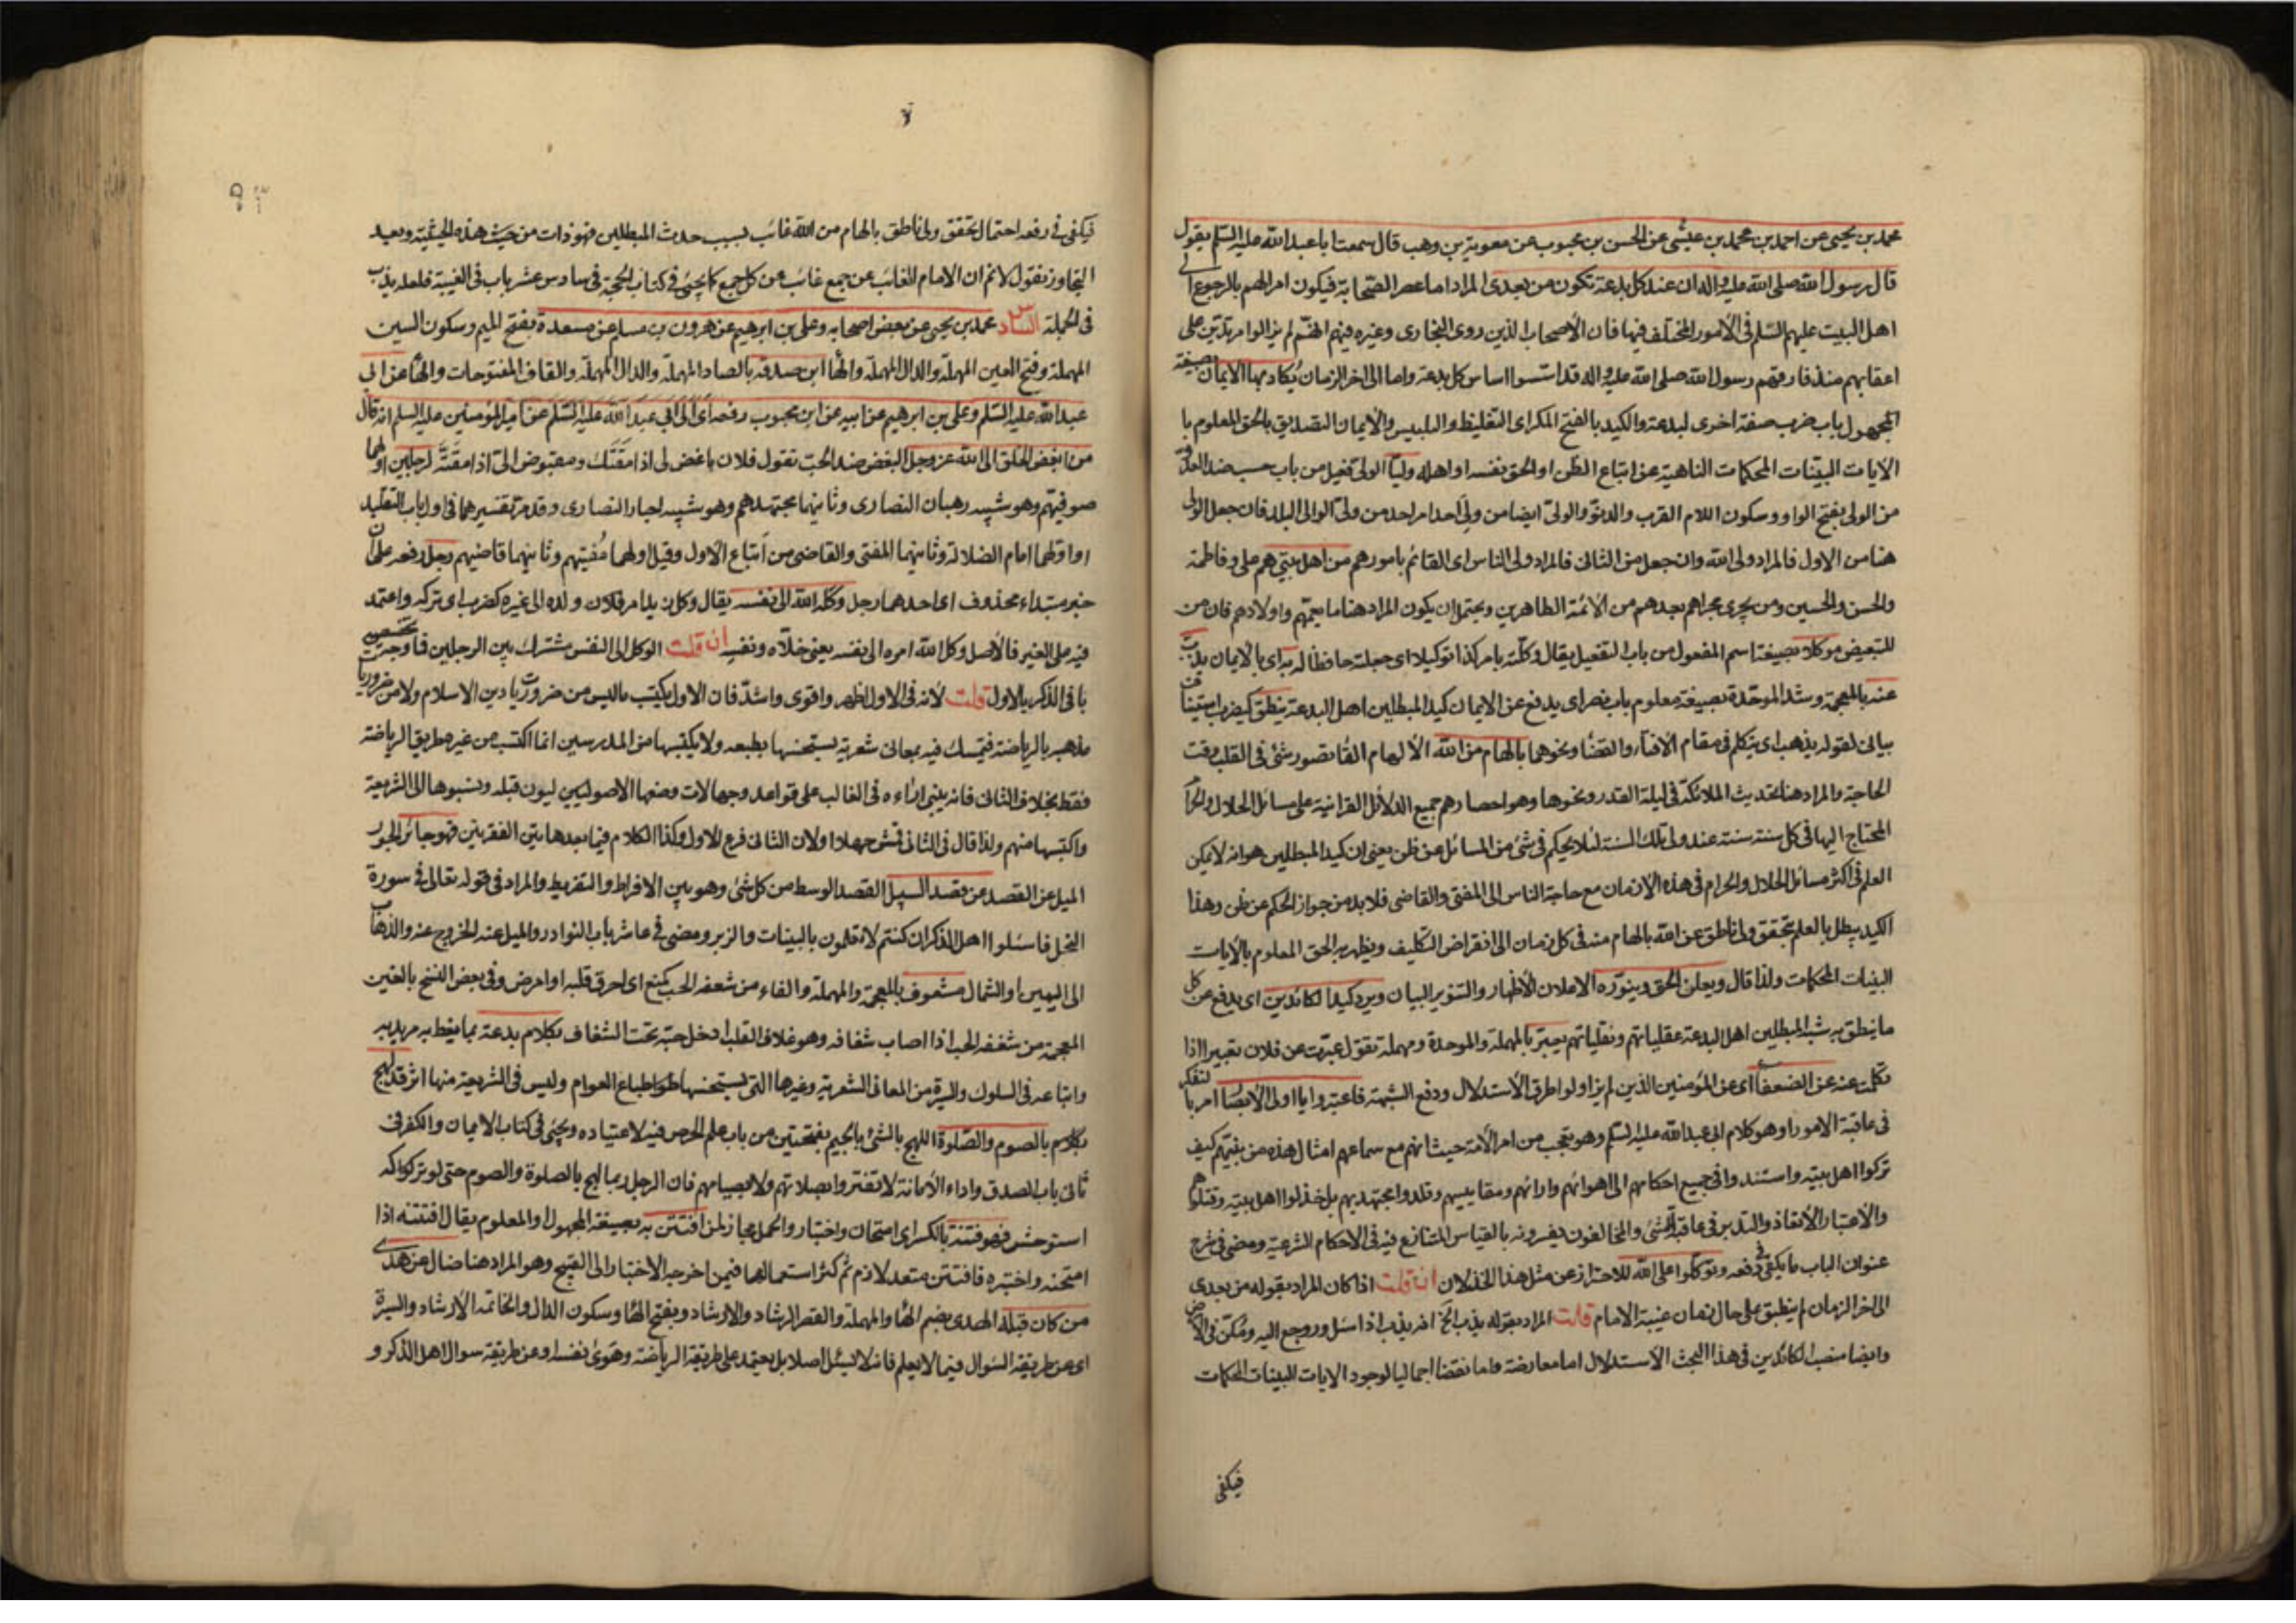 محمد بن يحيى عن احمد بن محمد بن عيسى عن الحسن بن محبوب عن معوية بن وهب قال سمعت ابا عبد الله عليه السلم يقول
قال رسول الله صلى الله عليه واله ان عند كل بدعة تكون من بعدى المراد اما عصر الصحابة فيكون امرا لهم بالرجوع الى
اهل البيت عليهم السلم فى الأمور المختلف فيها فان الأصحاب الذين روى البخارى وغيره فيهم انهم لم يزالوا مرتدين على
اعقابهم منذ فارقتهم رسول الله صلى الله عليه واله قد اسسوا اساس كل بدعة واما الى اخر الزمان يُكاد بها الايمان بصيغة
المجهول باب ضرب صفة اخرى لبدعة والكيد بالفتح المكر اى التغليظ والتلبيس والأيمان التصديق بالحق المعلوم با
الايات البينات المحكمات الناهية عن اتباع الظن او الحق نفسه او اهله وليّا الولى فعيل من باب حسب ضد العدو
من الولى بفتح الواو وسكون اللام القرب والدنوّ والولىّ ايضا من ولى احد امر احد من ولى الوالى البلد فان جعل الولى
هنا من الاول فالمراد ولى الله وان جعل من الثانى فالمراد ولى الناس اى القائم بامورهم من اهل بيتى هم على وفاطمة
والحسن والحسين ومن يجرى مجراهم بعدهم من الأئمة الطاهرين ويحتمل ان يكون المراد هنا ما يعمّهم واولادهم فان من
للتبعيض موكلا بصيغة اسم المفعول من باب التفعيل يقال وكلته بامر كذا توكيلا اى جعلته حافظا له به اى بالايمان يذب
عنه بالمعجمة وشد الموحدة بصيغة معلوم باب نصر اى يدفع عن الايمان كيد المبطلين اهل البدعة ينطق كيضرب استيناف
بيانى لقوله يذهب اى يتكلم فى مقام الافتاء والقضا ونحوهما بالهام من الله الألهام القا تصور شئ فى القلب وقت
الحاجة والمراد هنا تحديث الملائكة فى ليلة القدر ونحوها وهو احصارهم جميع الدلائل القرانية على مسائل الحلال والحرام
المحتاج اليها فى كل سنة سنة عند ولى تلك السنة لئلا يحكم فى شئ من المسائل عن ظن يعنى ان كيد المبطلين هو انه لا يمكن
العلم فى اكثر مسائل الحلال والحرام فى هذه الازمان مع حاجة الناس الى المفتى والقاضى فلا بد من جواز الحكم عن ظن وهذا
الكيد يبطل بالعلم بتحقق ولى ناطق عن الله بالهام منه فى كل زمان الى انقراض التكليف ويظهر به الحق المعلوم بالايات
البينات المحكمات ولذا قال ويعلن الحق وينوّره الاعلان الأظهار والتنوير البيان ويرد كيد الكائدين اى يدفع عن كل
ما ينطق به شبه المبطلين اهل البدعة عقلياتهم ونقلياتهم يعبّر بالمهملة والموحدة ومهملة تقول عبّرت عن فلان تعبيرا اذا
تكلمت عنه عن الضعفاء اى عن المؤمنين الذين لم يزاولوا طرق الأستدلال ودفع الشبهة فاعتبروا يا اولى الأبصار امر بالتفكر
فى عاقبة الامور او هو كلام ابى عبد الله عليه السلم وهو تعجب من امر الأمة حيث انهم مع سماعهم امثال هذه من نبيهم كيف
تركوا اهل بيته واستندوا فى جميع احكامهم الى اهوائهم وارائهم ومقاييسهم وقلدوا مجتهديهم بل خذلوا اهل بيته وقتلوهم
والأعتبار الأتعاذ والتدبر فى عاقبة الشئ والمخالفون يفسرونه بالقياس المتنازع فيه فى الاحكام الشرعية ومضى فى شرح
عنوان الباب ما يكفى فى دفعه وتوكلوا على الله للاحتراز عن مثل هذا الخذلان ان قلت اذا كان المراد بقوله من بعدى
الى اخر الزمان لم ينطبق على حال زمان غيبة الامام قلت المراد بقوله يذب الخ انه يذب اذا سئل وروجع اليه ومُكّن فى الأرض
وايضا منصب الكائدين فى هذا البحث الأستدلال اما معارضة واما نقضا اجماليا لوجود الايات البينات المحكمات
فيكفى
فيكفى فى دفعه احتمال تحقق ولى ناطق بالهام من الله غائب بسبب حدث المبطلين فهو ذات من حيث هذه الحيثية وبعيد
التجاوز نقول لا نم ان الامام الغائب عن جمع غائب عن كل جمع كما يجئ فى كتاب الحجة فى سادس عشر باب فى الغيبة فلعله يذب
فى الجملة السادس محمد بن يحيى عن بعض اصحابه وعلى بن ابرهيم عن هرون بن مسلم عن مسعدة بفتح الميم وسكون السين
المهملة وفتح العين المهملة والدال المهملة والها ابن صدقة بالصاد المهملة والدال المهملة والقاف المفتوحات والها عن ابى
عبد الله عليه السلم وعلى بن ابرهيم عن ابيه عن ابن محبوب رفعه اى الى ابى عبد الله عليه السلم عن امير المؤمنين عليه السلم انه قال
من ابغض الخلق الى الله عز وجل البغض ضد الحبّ تقول فلان باغض لى اذا مقتك ومبغوض الىّ اذا مقتّه لرجلين اولهما
صوفيتهم وهو شبيه رهبان النصارى وثانيهما مجتهدهم وهو شبيه احبار النصارى وقد مر تفسيرهما فى اول باب التقليد
او اولهما امام الضلالة وثانيهما المفتى والقاضى من اتباع الأول وقيل اولهما مُفتيهم وثانيهما قاضيهم رجل رفعه على ان
خبر مبتداء محذوف اى احدهما رجل وكله الله الى نفسه يقال وكل زيد امر فلان ولده الى غيره كضرب اى تركه واعتمد
فيه على الغير فالأصل وكل الله امره الى نفسه يعنى خلاّه ونفسه ان قلت الوكل الى النفس مشترك بين الرجلين فما وجه تخصيصه
با فى الذكر بالاول قلت لأنه فى الاول اظهر واقوى واشدّ فان الاول يكتب ما ليس من ضروريات دين الاسلام ولا من ضروريا
مذهبه بالرياضة فيتمسك فيه بمعانى شعرية يستحسنها بطبعه ولا يكتبها من المدرسين انما اكتسب من غير طريق الرياضة
فقط بخلاف الثانى فانه يبنى اراءه فى الغالب على قواعد وجهالات وضعها الاصوليون قبله ونسبوها الى الشريعة
واكتبها منهم ولذا قال فى الثانى قمش جهلا ولان الثانى فرع للاول وكذا الكلام فيما بعدها بين الفقرتين فهو جائر الجور
الميل عن القصد عن قصد السبيل القصد الوسط من كل شئ وهو بين الافراط والتفريط والمراد فى قوله تعالى فى سورة
النحل فاسئلوا اهل الذكر ان كنتم لا تعلمون بالبينات والزبر ومضى فى عاشر باب النوادر والميل عنه الخروج عنه والذهاب
الى اليمين او الشمال مشعوف بالمعجمة والمهملة والفاء من شعفه الحب كمنع اى احرق قلبه او امرض وفى بعض النسخ بالغين
المعجمة من شغفه الحب اذا اصاب شغافه وهو غلاف القلب ادخل حبّه تحت الشغاف بكلام بدعة بما يغلط به مريديه
واتباعه فى السلوك والسيرة من المعانى الشعرية وغيرها التى يستحسنها طباع العوام وليس فى الشريعة منها اثر قد لهج
بالصوم والصّلوة اللهج بالشئ بالجيم بفتحتين من باب علم الحرص فيه لاعتياده ويجئ فى كتاب الايمان والكفر فى
ثانى باب الصدق واداء الأمانة لا تغتروا بصلاتهم ولا بصيامهم فان الرجل ربما لهج بالصلوة والصوم حتى لو تركه
استوحش فهو فتنة بالكسر اى امتحان واختبار والحمل مجاز لمن افتتن به بصيغة المجهول او المعلوم يقال افتتنه اذا
امتحنه واختبره فافتتن متعد لازم ثم كثر استعمالها فيمن اخرجه الاختبار الى القبيح وهو المراد هنا ضال عن هدى
من كان قبله الهدى بضم الها والمهملة والقصر الرشاد والارشاد وبفتح الها وسكون الدال والخاتمة الأرشاد والسيرة
اى عن طريقة السؤال فيما لا يعلم فانه لا يسئل اصلا بل يعتمد على طريقة الرياضة وهوى نفسه او عن طريقة سوال اهل الذكر و